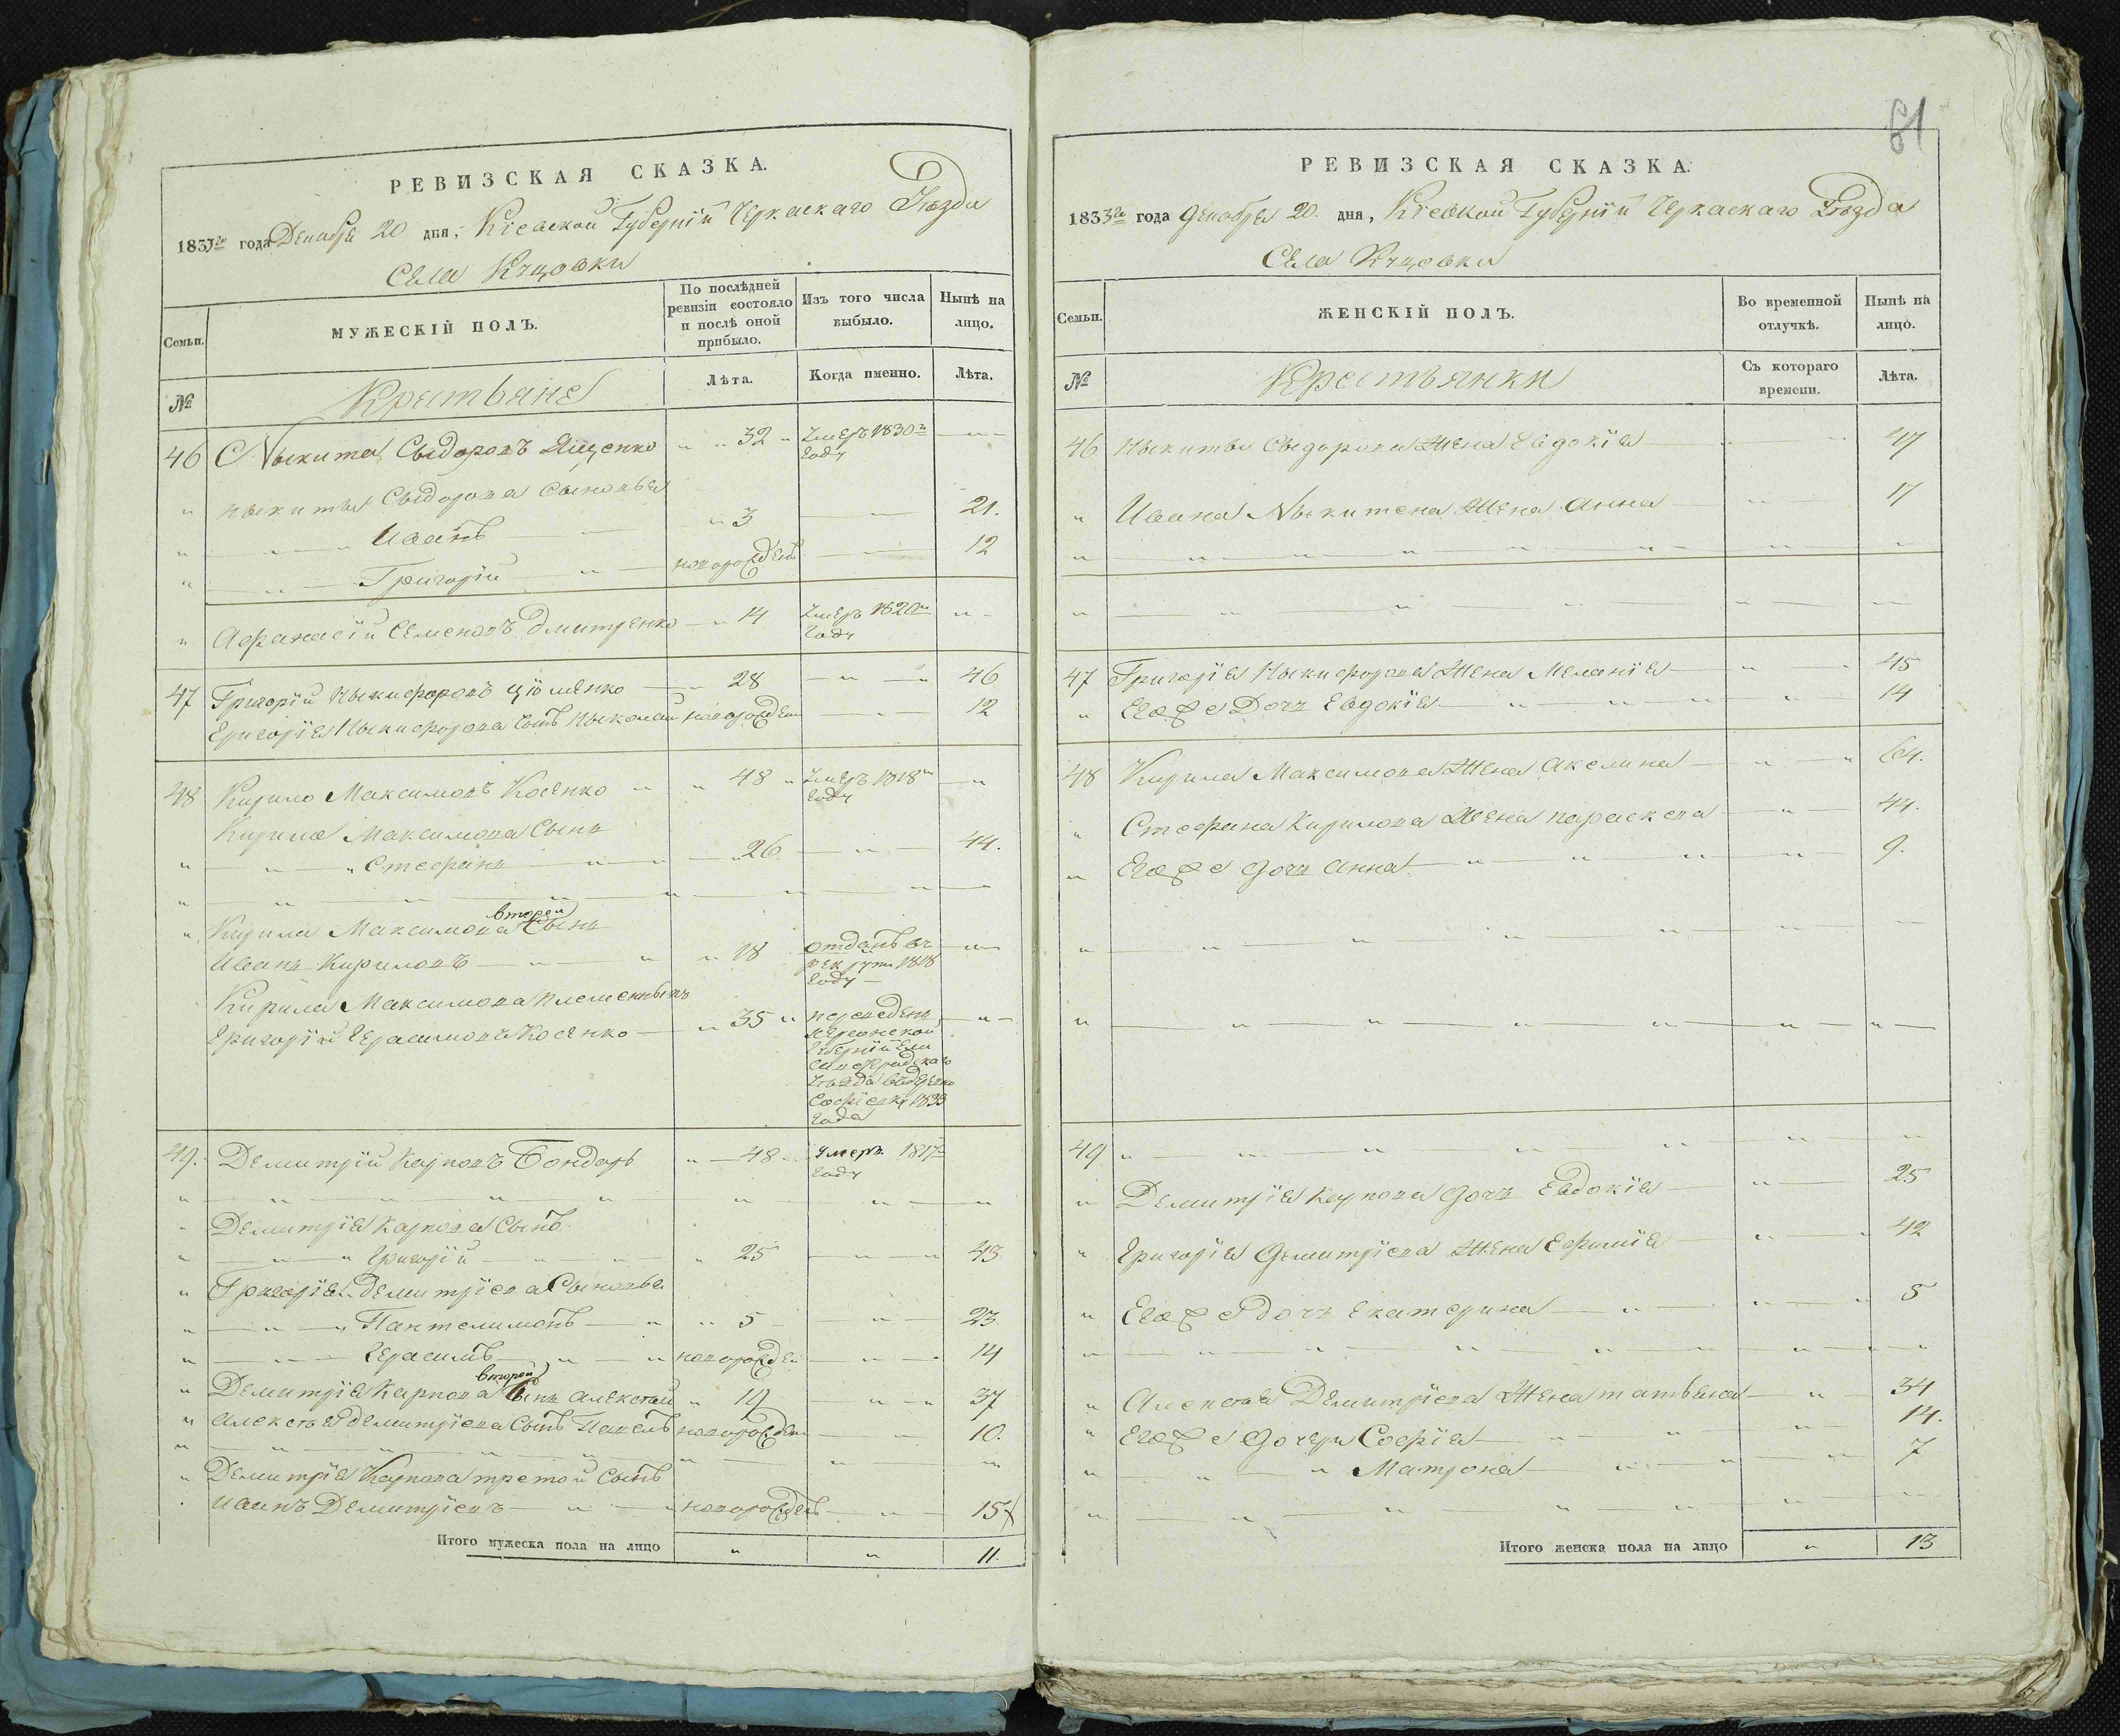 РЕВИЗСКАЯ СКАЗКА.
1833го года Декабря 20 дня, Кіевской Губерніи Черкаскаго Уѣзда
Села Куцовки
Семьи. МУЖЕСКІЙ ПОЛЪ. По послѣдней ревизіи состояло и послѣ оной прибыло. Изъ того числа выбыло. Нынѣ на лицо.
№ Крестьяне Лѣта. Когда именно. Лѣта.
46 Ныкита Сыдоровъ Ященко „ „ 32 „ Умеръ 1830го году
„ Ныкиты Сыдорова Сыновья
„ Иванъ „ 3 21.
„ Григорій новорожденъ 12
„ Афанасій Семеновъ Дмитренко „ 14 Умеръ 1820го году
47 Григорій Ныкифоровъ Цюменко 28 46
Григорія Ныкифорова Сынъ Ныколай новорожден 12
48 Кирило Максимовъ Косенко „ 48 „ Умеръ 1818го году
Кирила Максимова Сынъ
„ Стефанъ „ 26 44.
„ Кирила Максимова второй Сынъ
Иванъ Кириловъ „ 18 отданъ въ рекруты 1818 году
Кирила Максимова племенныкъ
Григорій Герасимовъ Косенко „ 35 „ переведенъ Херсонской Губерніи Ели саветградскаго Уѣзда въ деревню Софіевку 1833 года
49. Демитрій Карповъ Бондарь „ 48 умеръ 1817 году
Демитрія Карпова Сынъ
„ Григорій „ 25 43
„ Григорія Демитріева Сыновья
„ Пантелимонъ „ 5 23
„ Герасимъ новорожден 14
„ Демитрія Карпова второй Сынъ Алексѣй „ 19 37
„ Алексѣя Демитріева Сынъ Павелъ новорожден 10.
„ Демитрія Карпова третой Сынъ
Иванъ Демитріевъ новорожденъ 15
Итого мужеска пола на лицо „ „ 11.
61
РЕВИЗСКАЯ СКАЗКА.
1833го года Декабря 20. дня, Кіевкой Губерніи Черкаскаго Уѣзда
Села Куцовки
Семьи. ЖЕНСКІЙ ПОЛЪ. Во временной отлучкѣ. Нынѣ на лицо.
№ Крестьянки Съ котораго времени. Лѣта.
46 Ныкиты Сыдорова Жена Евдокія 47
„ Ивана Ныкитева Жена Анна 17
47 Григорія Ныкифорова Жена Меланія 45
„ Его же Дочь Евдокія 14
48 Кирила Максимова Жена Акелина 64.
„ Стефана Кирилова Жена Параскева 44.
„ Его же Дочь Анна 9.
49
„ Демитрія Карпова Дочь Евдокія 25
„ Григорія Демитріева Жена Ефимія 42
„ Его же Дочь Екатерина 5
„ Алексѣя Демитріева Жена Татьяна 34
„ Его же Дочери Софія 14.
„ Матрона 7
Итого женска пола на лицо „ 13